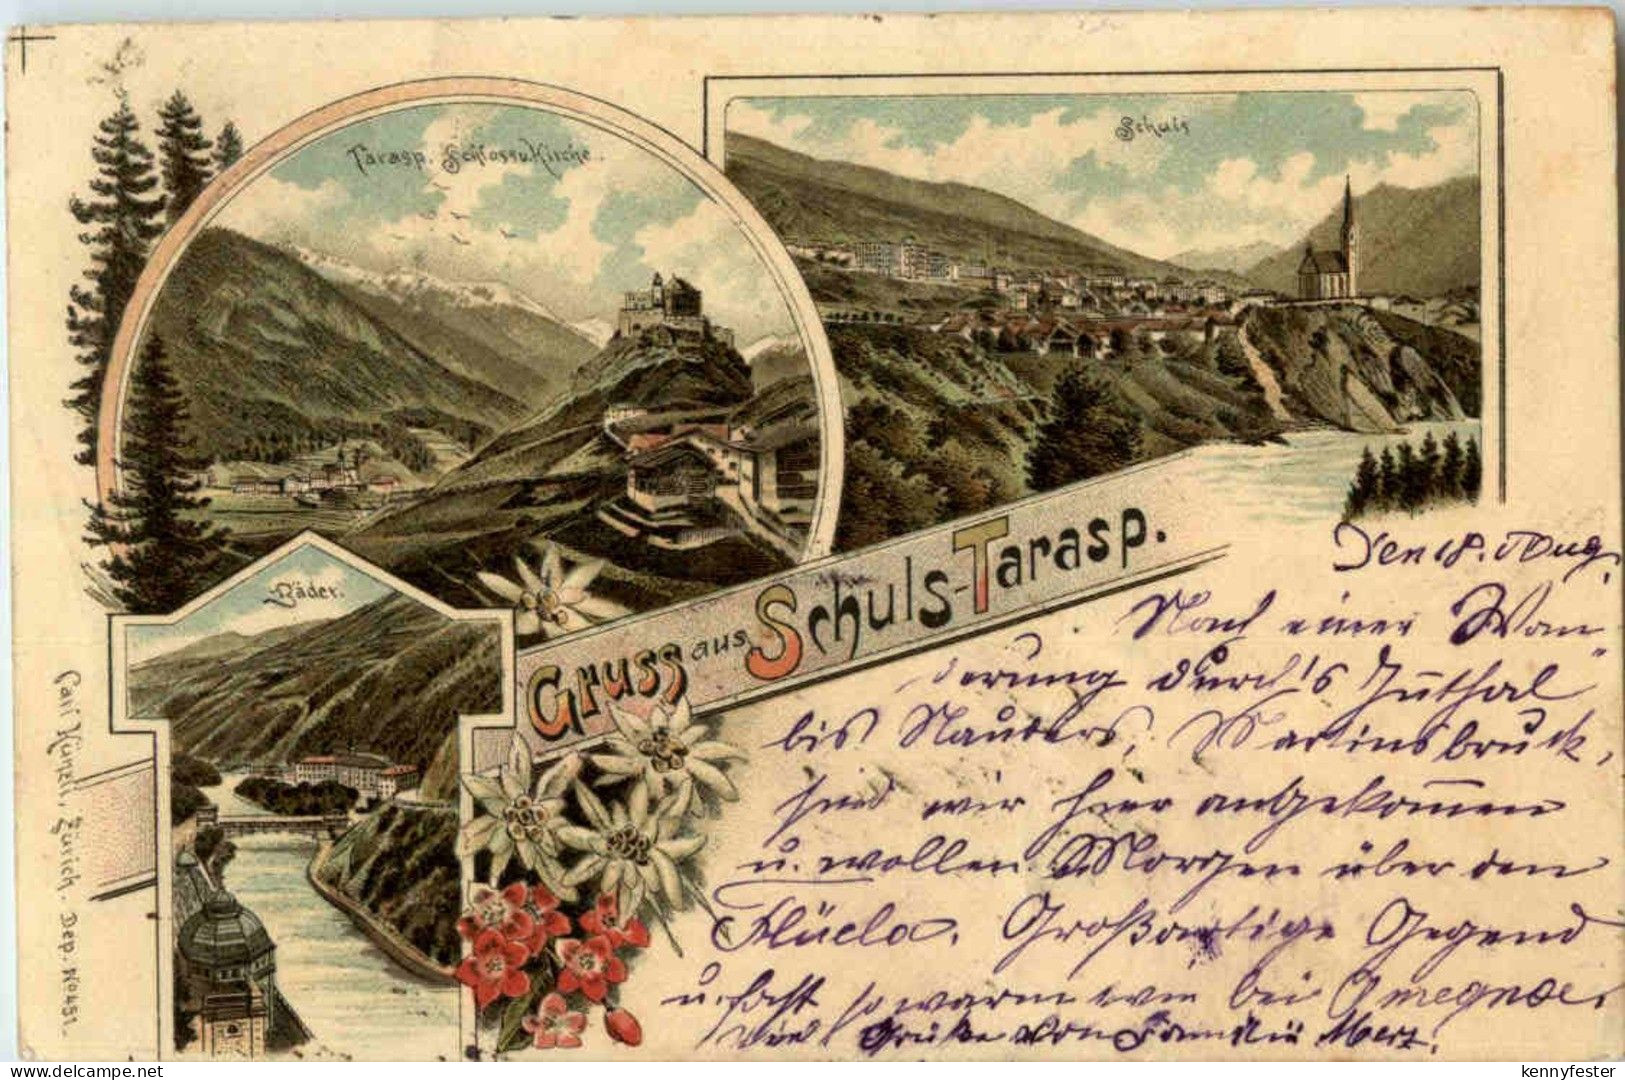 Tarasp. Schloss u. Kirche.
Schuls
Bäder.
Gruss aus Schuls-Tarasp.
Carl Künzli, Zürich. Dep. No 451.
Den 18. Aug.
Nach einer Wan
derung durch's
bis Nauders, Martinsbruck,
sind wir hier angekommen
u. wollen Morgen über den
Flüela. Großartige Gegend
u. fast so warm wie bei
Grüße von Familie Merz.
kennyfester